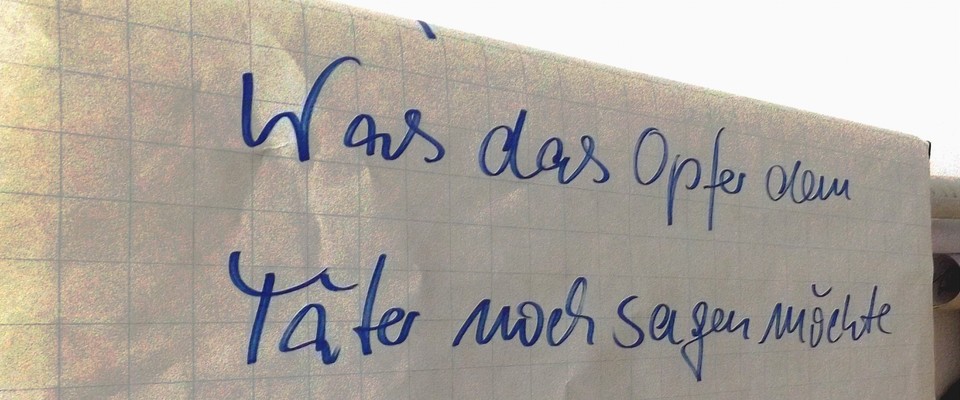 Was das Opfer dem
Täter noch sagen möchte